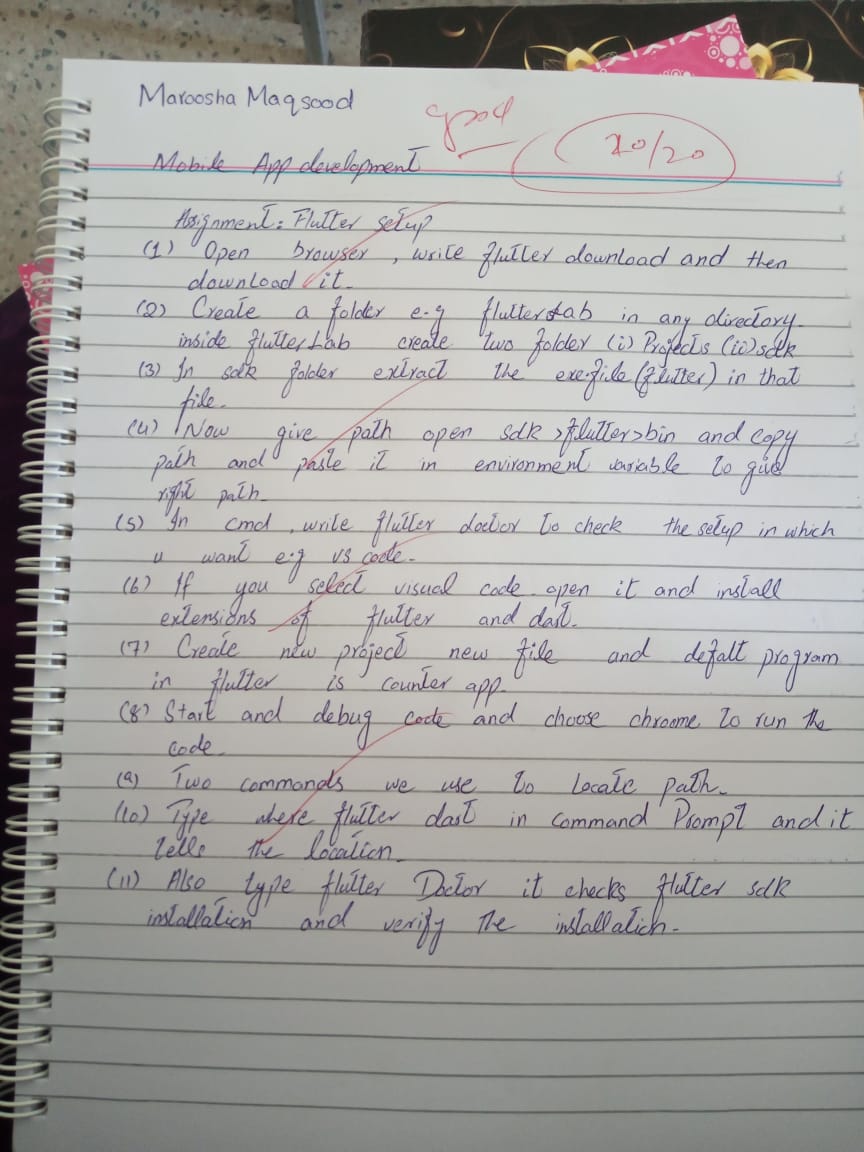 Maroosha Maqsood
good
20/20
Mobile App development
Assignment: Flutter setup
(1) Open browser, write flutter download and then
download it.
(2) Create a folder e-g flutterLab in any directory.
inside flutterLab create two folder (i) Projects (ii) sdk
(3) In sdk folder extract the exe-file (flutter) in that
file.
(4) Now give path open sdk >flutter>bin and copy
path and paste it in environment variable to give
right path.
(5) In cmd, write flutter doctor to check the setup in which
u want e:g vs code.
(6) If you select visual code open it and install
extensions of flutter and dart.
(7) Create new project new file and defalt program
in flutter is counter app.
(8) Start and debug code and choose chroome to run the
code.
(9) Two commands we use to locate path.
(10) Type where flutter dart in command Prompt and it
tells the location.
(11) Also type flutter Doctor it checks flutter sdk
installation and verify the installation.